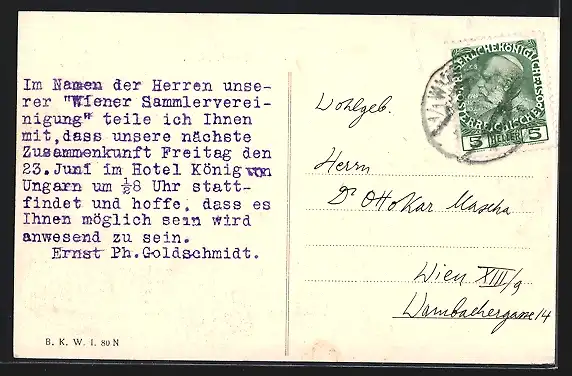 Im Namen der Herren unse-
rer "Wiener Sammlerverei-
nigung" teile ich Ihnen
mit, dass unsere nächste
Zusammenkunft Freitag den
23. Juni im Hotel König von
Ungarn um ½8 Uhr statt-
findet und hoffe, dass es
Ihnen möglich sein wird
anwesend zu sein.
Ernst Ph. Goldschmidt.
B. K. W. I. 80 N
Wohlgeb.
Herrn
Dr Ottokar Mascha
Wien XIII/9
Wambachergasse 14
5 HELLER 5